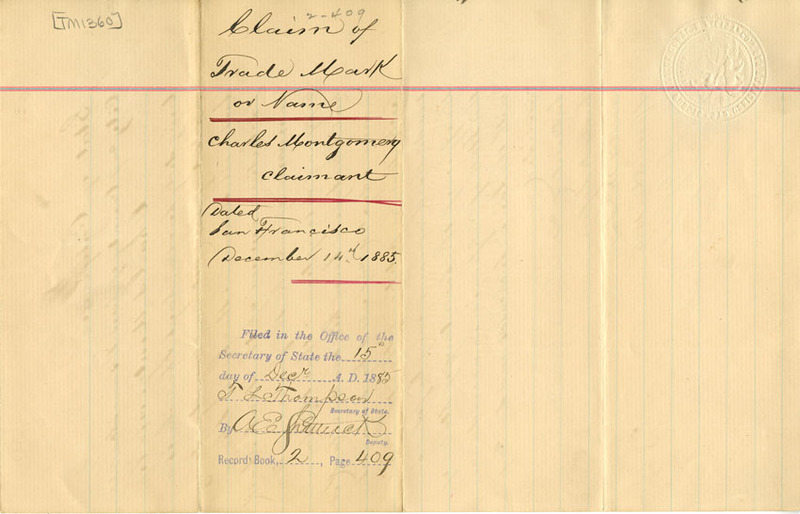 [TM1360]
2-409
Claim of
Trade Mark
or Name
Charles Montgomery
Claimant
Dated
San Francisco
December 14th 1885.
Filed in the Office of the
Secretary of State the 15th
day of Decr A. D. 1885
T L Thompson
Secretary of State.
By A E Shattuck
Deputy.
Record Book, 2, Page 409